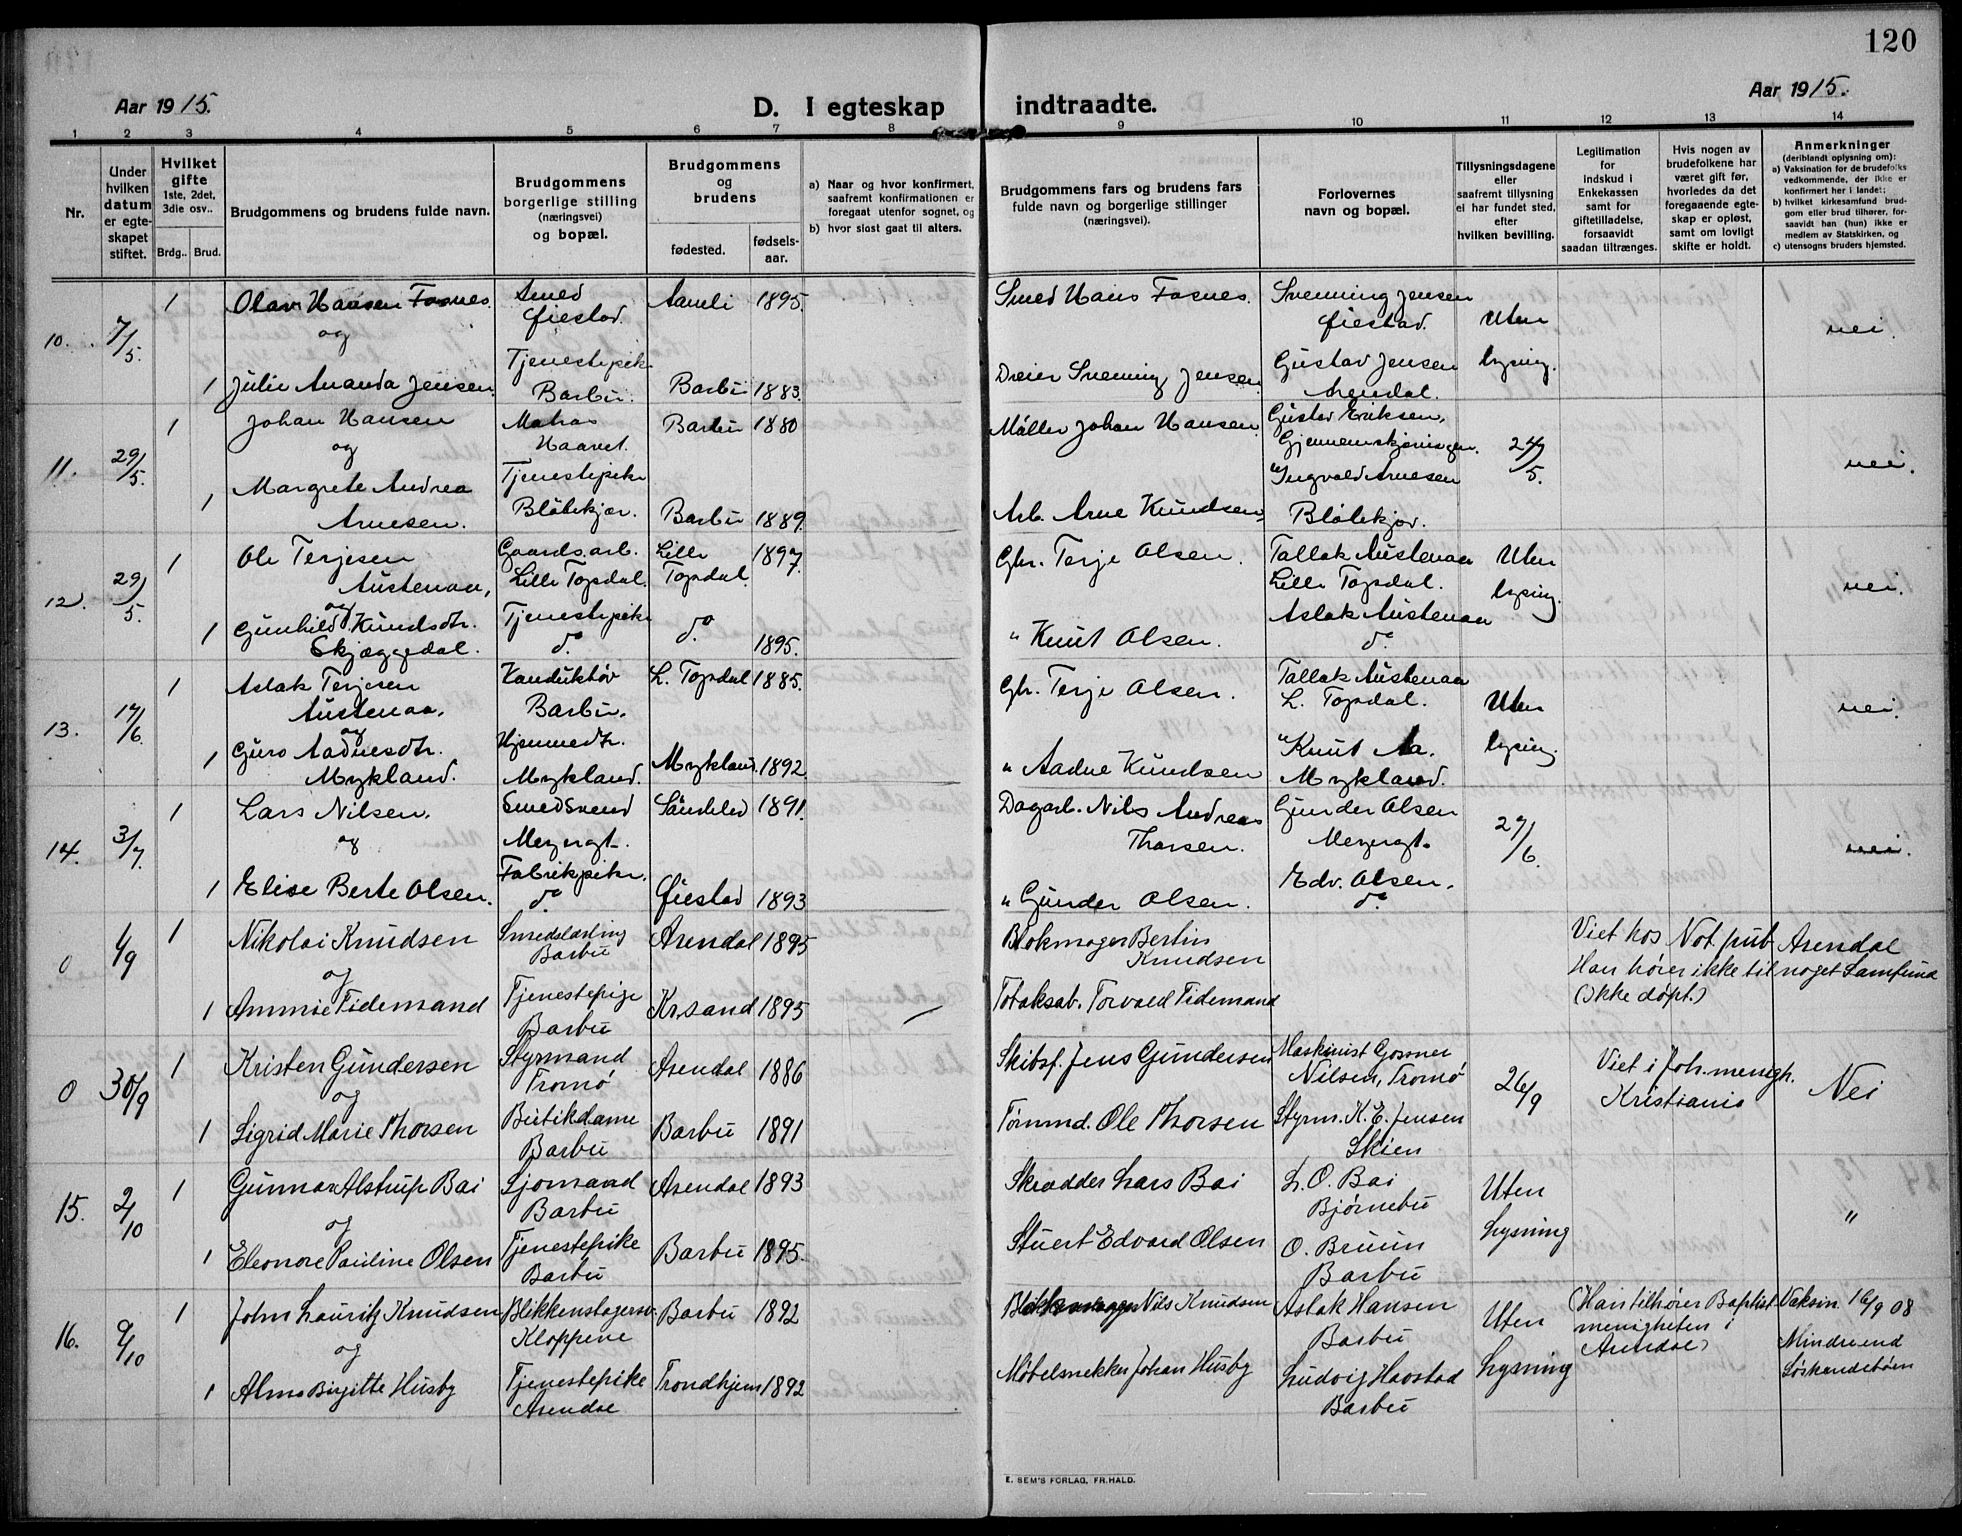 120
Aar 1915.
D. I egteskap indtraadte.
Aar 1915.
1 2 3 4 5 6 7 8 9 10 11 12 13 14
Nr.
Under hvilken datum er egteskapet stiftet.
Hvilket gifte
1ste, 2det, 3die osv..
Brdg.. Brud.
Brudgommens og brudens fulde navn.
Brudgommens borgerlige stilling (næringsvei) og bopæl.
Brudgommens og brudens
fødested.
fødselsaar.
a) Naar og hvor konfirmert, saafremt konfirmationen er foregaat utenfor sognet, og
b) hvor sidst gaat til alters.
Brudgommens fars og brudens fars fulde navn og borgerlige stillinger (næringsvei).
Forlovernes navn og bopæl.
Tillysningsdagene eller saafremt tillysning ei har fundet sted, efter hvilken bevilling.
Legitimation for indskud i Enkekassen samt for giftetilladelse, forsaavidt saadan tiltrænges.
Hvis nogen av brudefolkene har været gift før, hvorledes da det foregaaende egteskap er opløst, samt om lovligt skifte er holdt.
Anmerkninger (deriblandt oplysning om):
a) Vaksination for de brudefolks vedkommende, der ikke er konfirmert her i landet;
b) hvilket kirkesamfund brudgom eller brud tilhører, forsaavidt han (hun) ikke er medlem av Statskirken, og
c) utensogns bruders hjemsted.
10. 7/5. 1 Olav Hansen Fosnes. Smed Øiestad. Aamli 1895. Smed Hans Fosnes. Svenning Jensen Øiestad. Uten lysing. nei.
og
1 Julie Amanda Jensen. Tjenestepike Barbu. Barbu 1883. Dreier Svenning Jensen Gustav Jensen Arendal.
11. 29/5. 1 Johan Hansen Matros Haavet. Barbu 1880 Møller Johan Hansen Gustav Eriksen, Gjennemskjæringen. 24/5. nei.
og
1 Margrete Andrea Arnesen. Tjenestepike Bløbekjær. Barbu 1889. Arb. Arne Knudsen Ingvald Arnesen Bløbekjær.
12. 29/5. 1 Ole Terjesen Austenaa, Gaards.arb. Lille Topdal. Lille Topdal. 1897. Gbr. Terje Olsen. Tallak Austenaa Lille Topdal. Uten lysing. nei.
og
1 Gunhild Knudsdtr. Skjæggedal. Tjenestepike do. do. 1895. " Knut Olsen. Aslak Austenaa do
13. 17/6. 1 Aslak Terjesen Austenaa. Konduktør Barbu. L. Topdal 1885. Gbr. Terje Olsen. Tallak Austenaa L. Topdal. Uten lysing. nei.
og
1 Guro Aadnesdtr. Mykland. Hjemmedtr. Mykland. Mykland. 1892 " Aadne Knudsen "Knut Aa. Mykland.
14. 3/7. 1 Lars Nilsen. Smedsvend Søndeled 1891. Dagarb. Nils Andreas Thorsen. Gunder Olsen 27/6. nei.
og
1 Elise Berte Olsen. Fabrikpike. do Øiestad 1893 " Gunder Olsen. Edv. Olsen. do
0 1/9 1 Nikolai Knudsen Smedslærling Barbu Arendal 1895 Blokmager Bertin Knudsen Viet hos Not. pub. Arendal
Han hører ikke til noget Samfund
(Ikke døpt.)
og
1 Ammie Tidemand Tjenestepige Barbu Kr.sand 1895 Tobaksab. Torvald Tidemand
0 30/9 1 Kristen Gundersen Styrmand Tromø Arendal 1886 Skibsf. Jens Gundersen Maskinist Gosner Nilsen, Tromø 26/9 Viet i Joh. menigh. Kristiania Nei
og
1 Sigrid Marie Thorsen Butikdame Barbu Barbu 1891 Tømmd. Ole Thorsen Styrm. K. E. Jensen Skien
15. 2/10 1 Gunnar Alstrup Bai Sjømand Barbu Arendal 1893 Skrædder Lars Bai L. O. Bai Bjørnebu Uten Lysning "
og
1 Eleonore Pauline Olsen Tjenestepike Barbu Barbu 1895. Stuert Edvard Olsen O. Bruun Barbu
16. 9/10 1 John Lauritz Knudsen Blikkenslagersv. Kloppene Barbu 1892 Nils Knudsen Aslak Hansen Barbu Uten Lysning (Han tilhører Baptistmenigheten i Arendal) Vaksin. 16/9 08
Mindre end Søskendebørn
og
1 Alma Birgitte Husby Tjenestepike Arendal Trondhjem 1892 Møbelsnekker Johan Husby Ludvig Havstad Barbu
E. SEM'S FORLAG, FR.HALD.